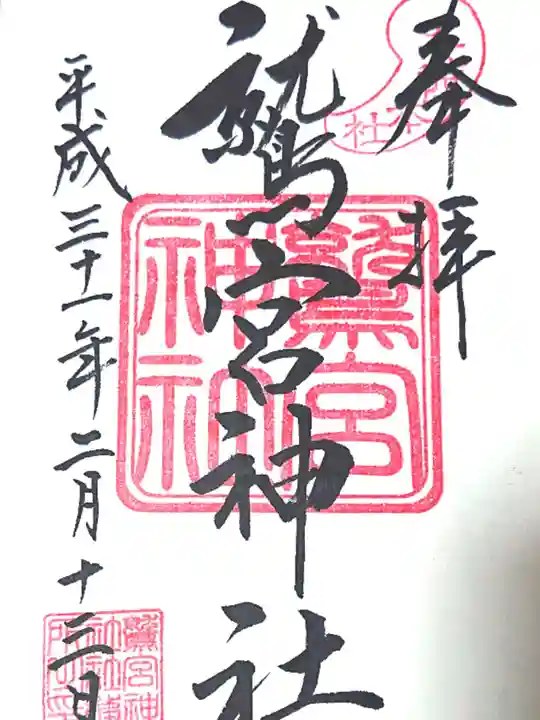 奉拝
鷲宮神社
平成三十一年二月十三日
鷲宮
神社